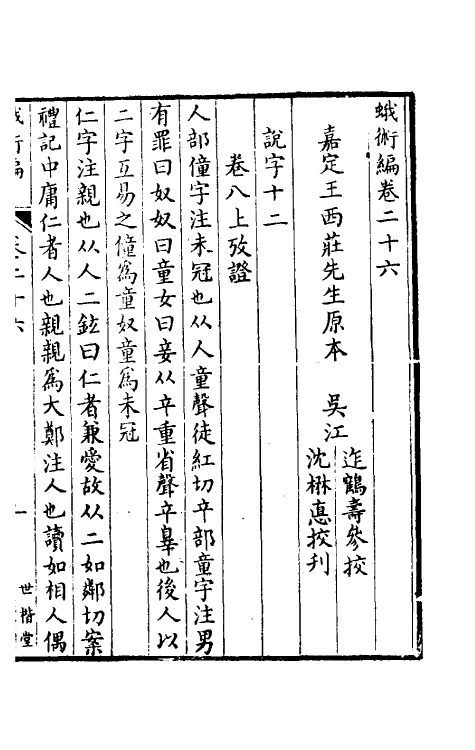 蛾術編卷二十六
嘉定王西莊先生原本　吳江
迮鶴壽參挍
沈楙悳挍刋
說字十二
卷八上攷證
人部僮字注未冠也从人童聲徒紅切䇂部童字注男
有罪曰奴奴曰童女曰妾从䇂重省聲䇂辠也後人以
二字互易之僮爲童奴童爲未冠
仁字注親也从人二鉉曰仁者兼愛故从二如鄰切案
禮記中庸仁者人也親親爲大鄭注人也讀如相人偶
蛾術編　卷二十六　一　世楷堂